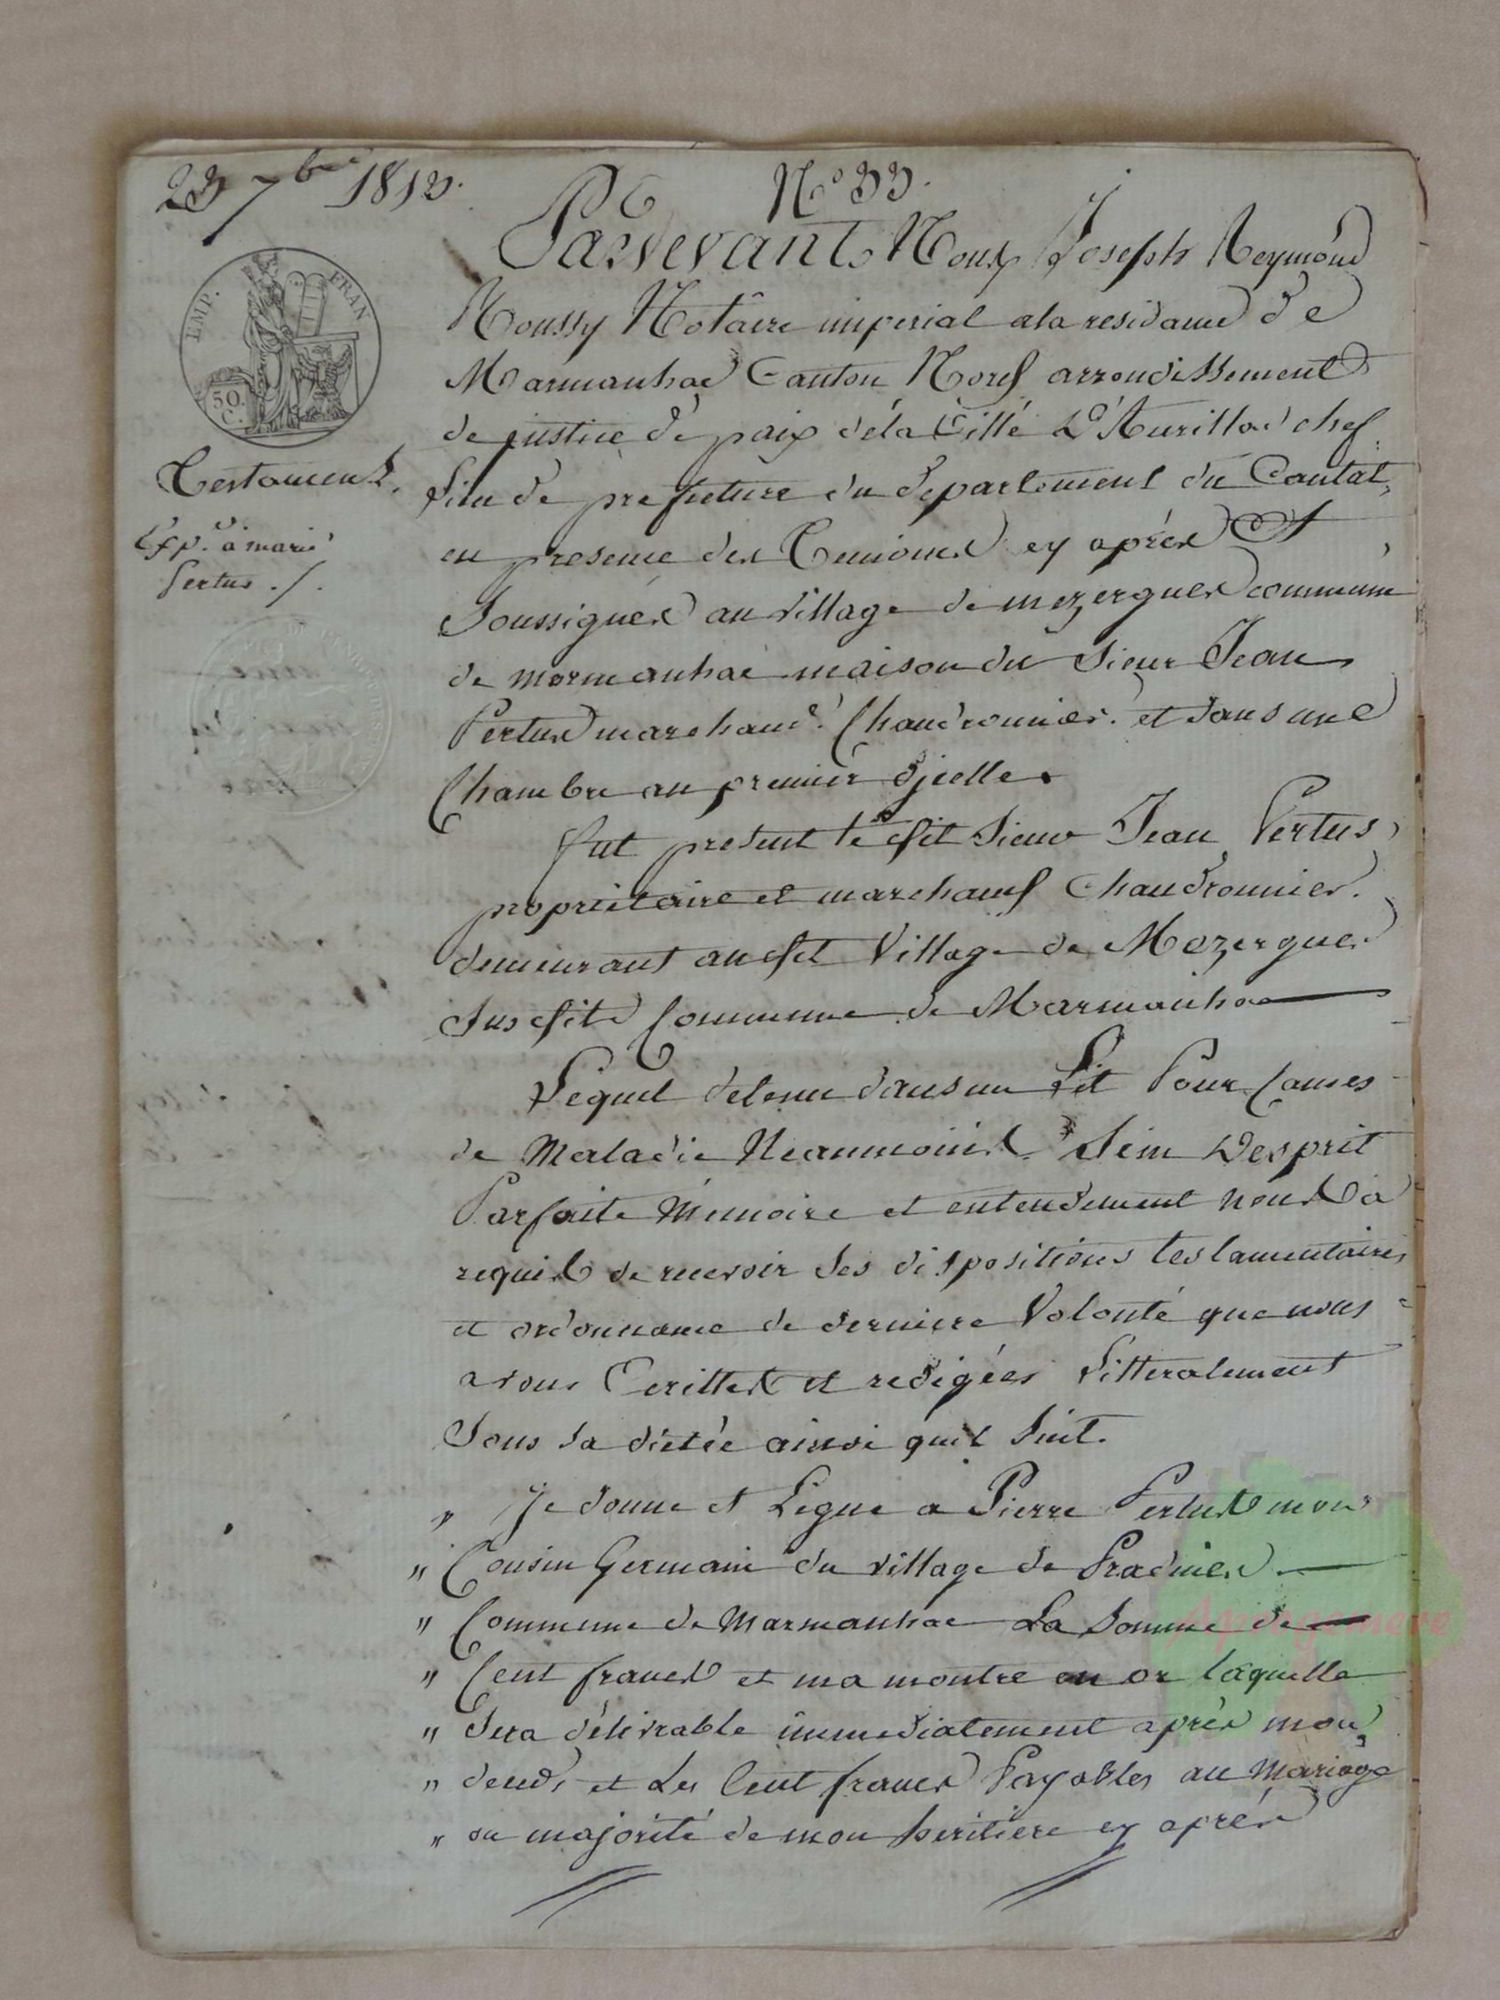 23 7bre 1813.
N° 33.
Pardevant Nous Joseph Reymond
EMP. FRAN
50.
C.
Moussy Notaire imperial a la residance de
Marmanhac Canton Nord arrondissement
de justice de paix de la Ville D'Aurillac chef
Testament.
lieu de prefecture du departement du Cantal,
Exp. a marie
en presence des Temoins cy après et
Vertus ./.
Soussignés au Village de mezergues commune
de marmanhac maison du Sieur Jean
Vertus marchand Chaudronnier et dans une
Chambre au premier d'icelle
fut present le dit Sieur Jean Vertus,
proprietaire et marchand Chaudronnier.
demeurant au dit Village de Mezergues
Susdite Commune de Marmanhac
Lequel detenu dans un Lit Pour Causes
de Maladie Neanmoins Sain D'esprit
Parfaite Memoire et entendement nous a
requis de recevoir Ses dispositions testamentaires
et ordonnance de derniere Volonté que nous
avons Ecrittes et redigées Litteralement
Sous Sa dictée ainsi quil Suit.
" Je donne et Legue a Pierre Vertus mon
" Cousin Germain du village de Pradines
" Commune de Marmanhac La Somme de
" Cent francs et ma montre en or laquelle
" Sera délivrable immediatement après mon
" deces et Les Cent francs Payables au Mariage
" ou majorité de mon heritiere cy après
Aprogemere